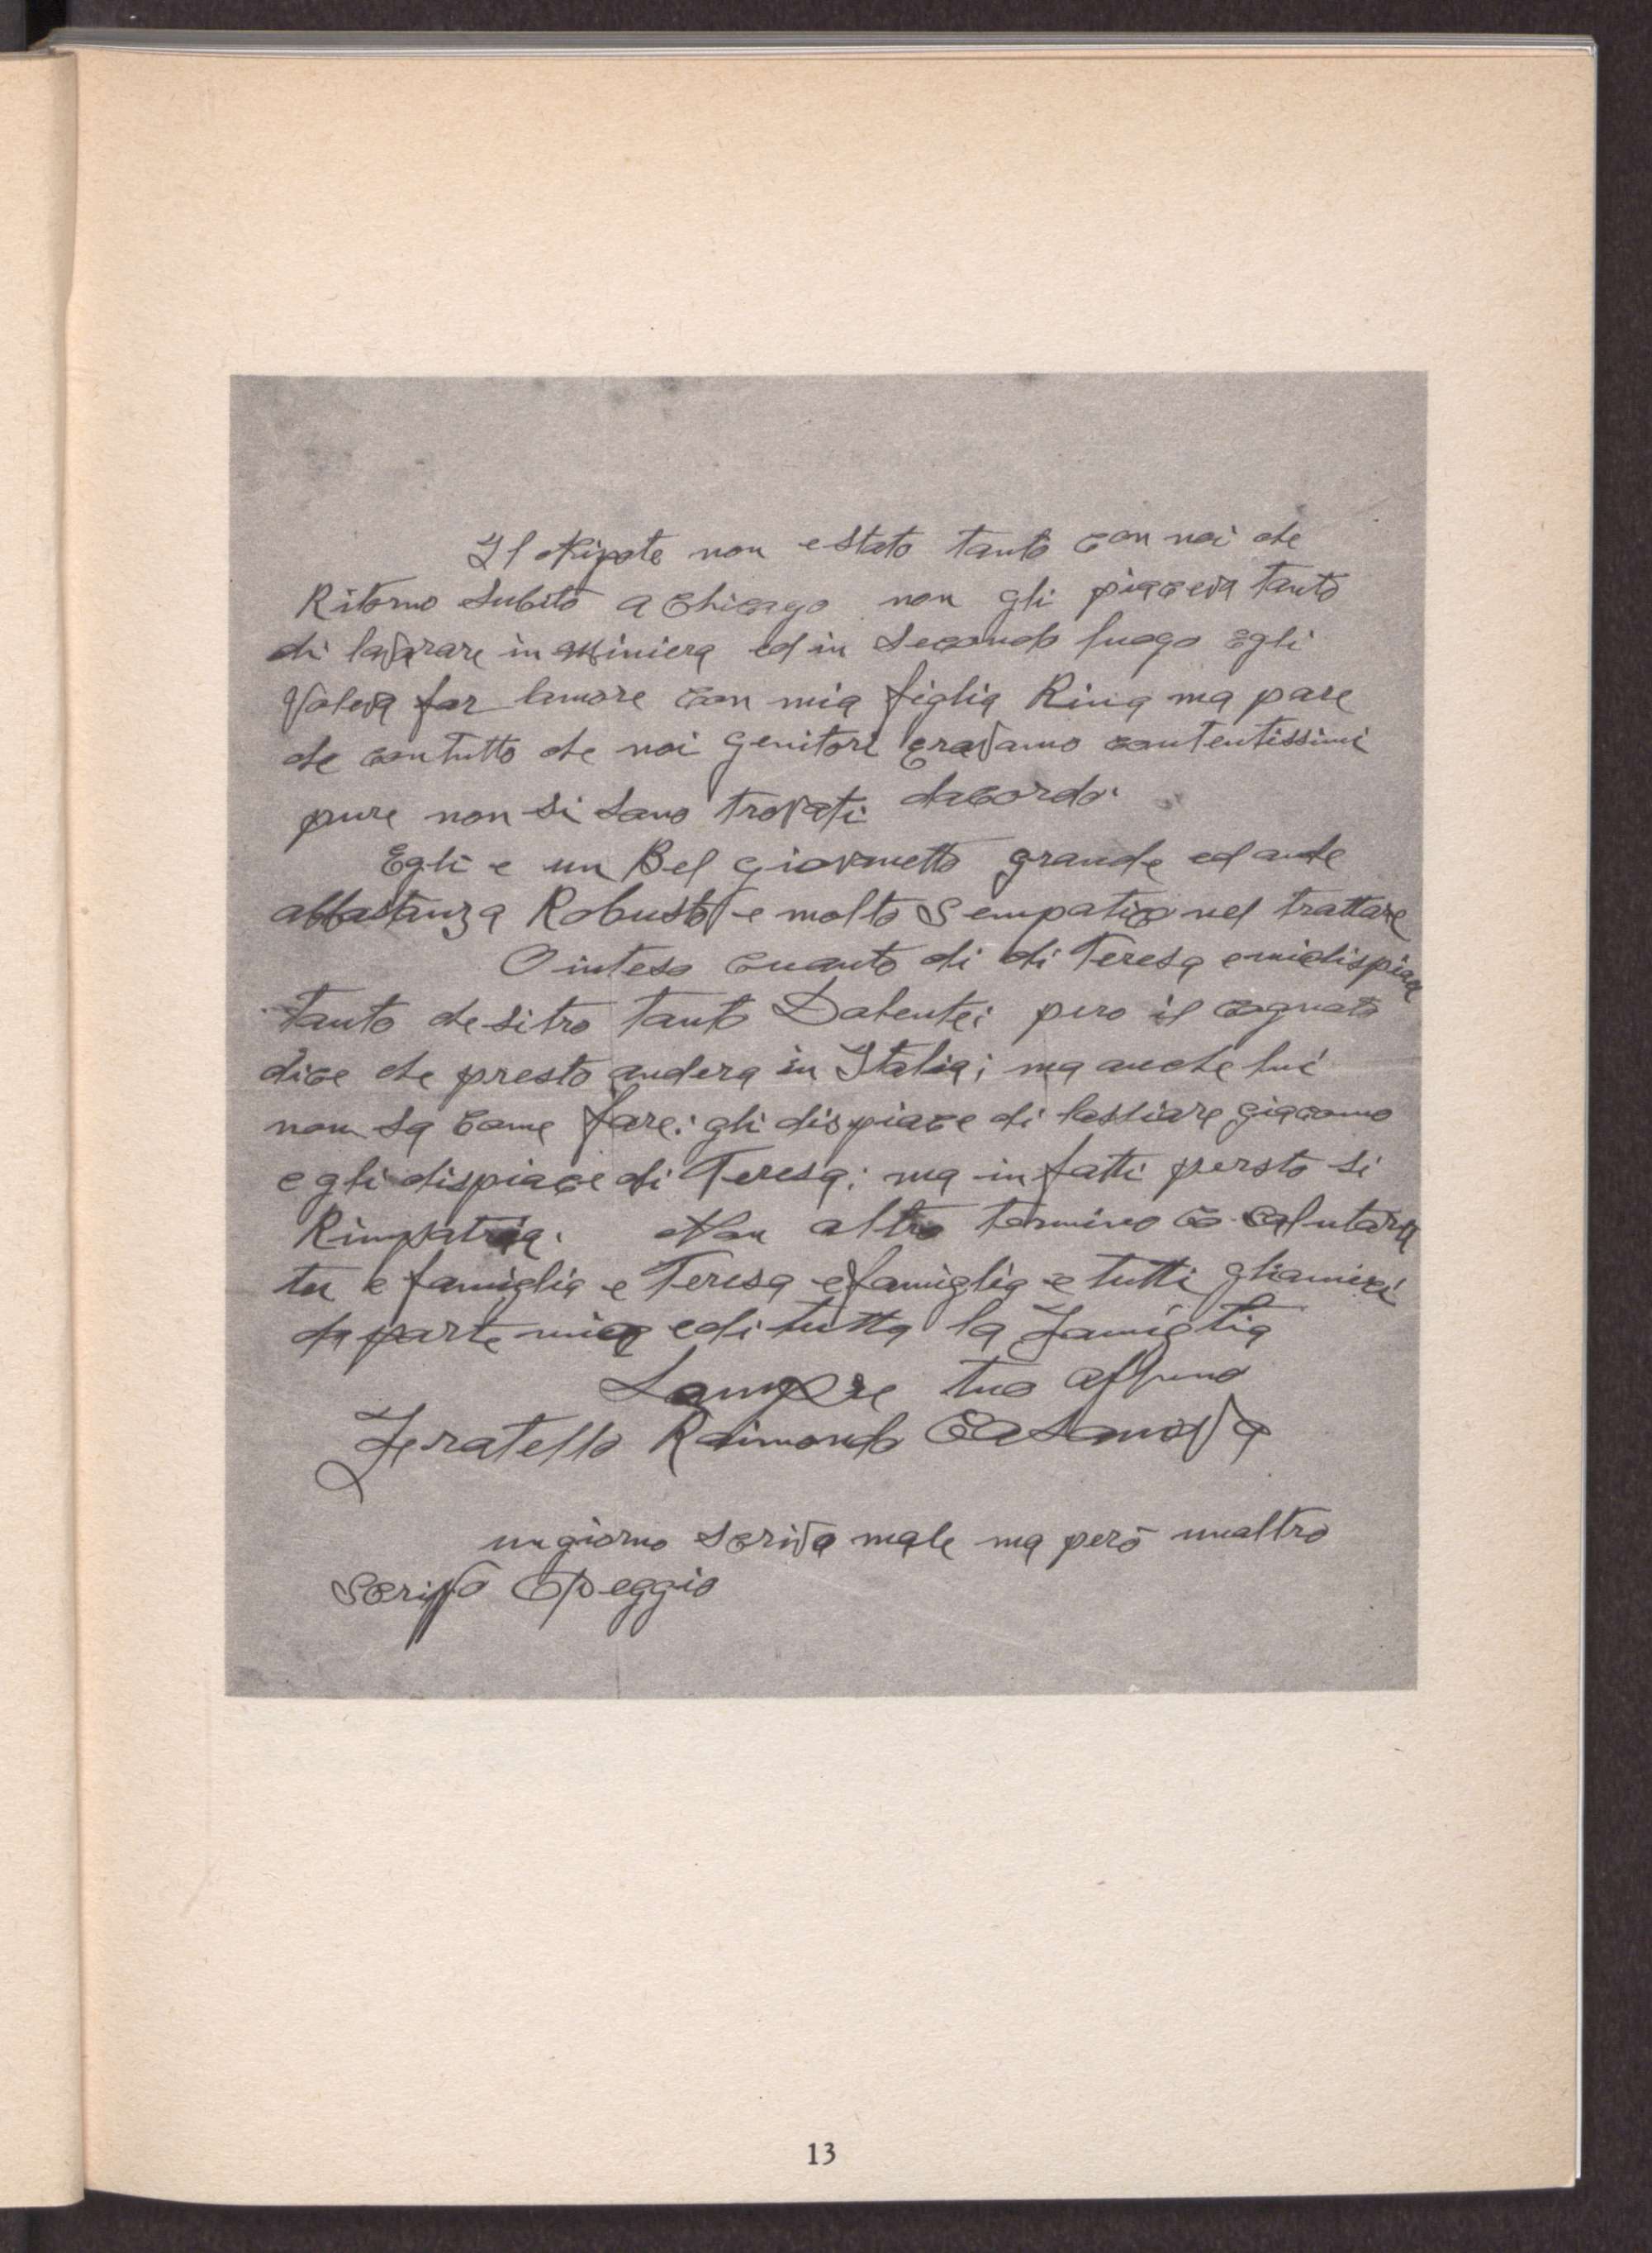 Il Nipote non e stato tanto con noi che
Ritorno Subito a Chicago non gli piaceva tanto
di lavarare in miniera ed in Secondo luogo Egli
Voleva far lamore con mia figlia Rina ma pare
che contutto che noi Genitori Eravamo contentissimi
pure non si sono trovati dacordo.
Egli e un Bel giovanetto grande ed anche
abbastanza Robusto e molto Sempatico nel trattare
O inteso cuanto di di Teresa e midispiace
tanto che sitro tanto Dalente; pero il cognato
dice che presto andera in Italia; ma anche lui
non sa come fare: gli dispiace di lasciare giacomo
e gli dispiace di Teresa; ma in fatti persto si
Rimpatria. Non altro termino co salutarvi
tu e famiglia e Teresa e famiglia e tutti gliamici
da parte mia edi tutta la Famiglia
Sempre tuo affmo
Fratello Raimondo Casanova
ungiorno scrivo male ma però unaltro
Scrivo Peggio
13